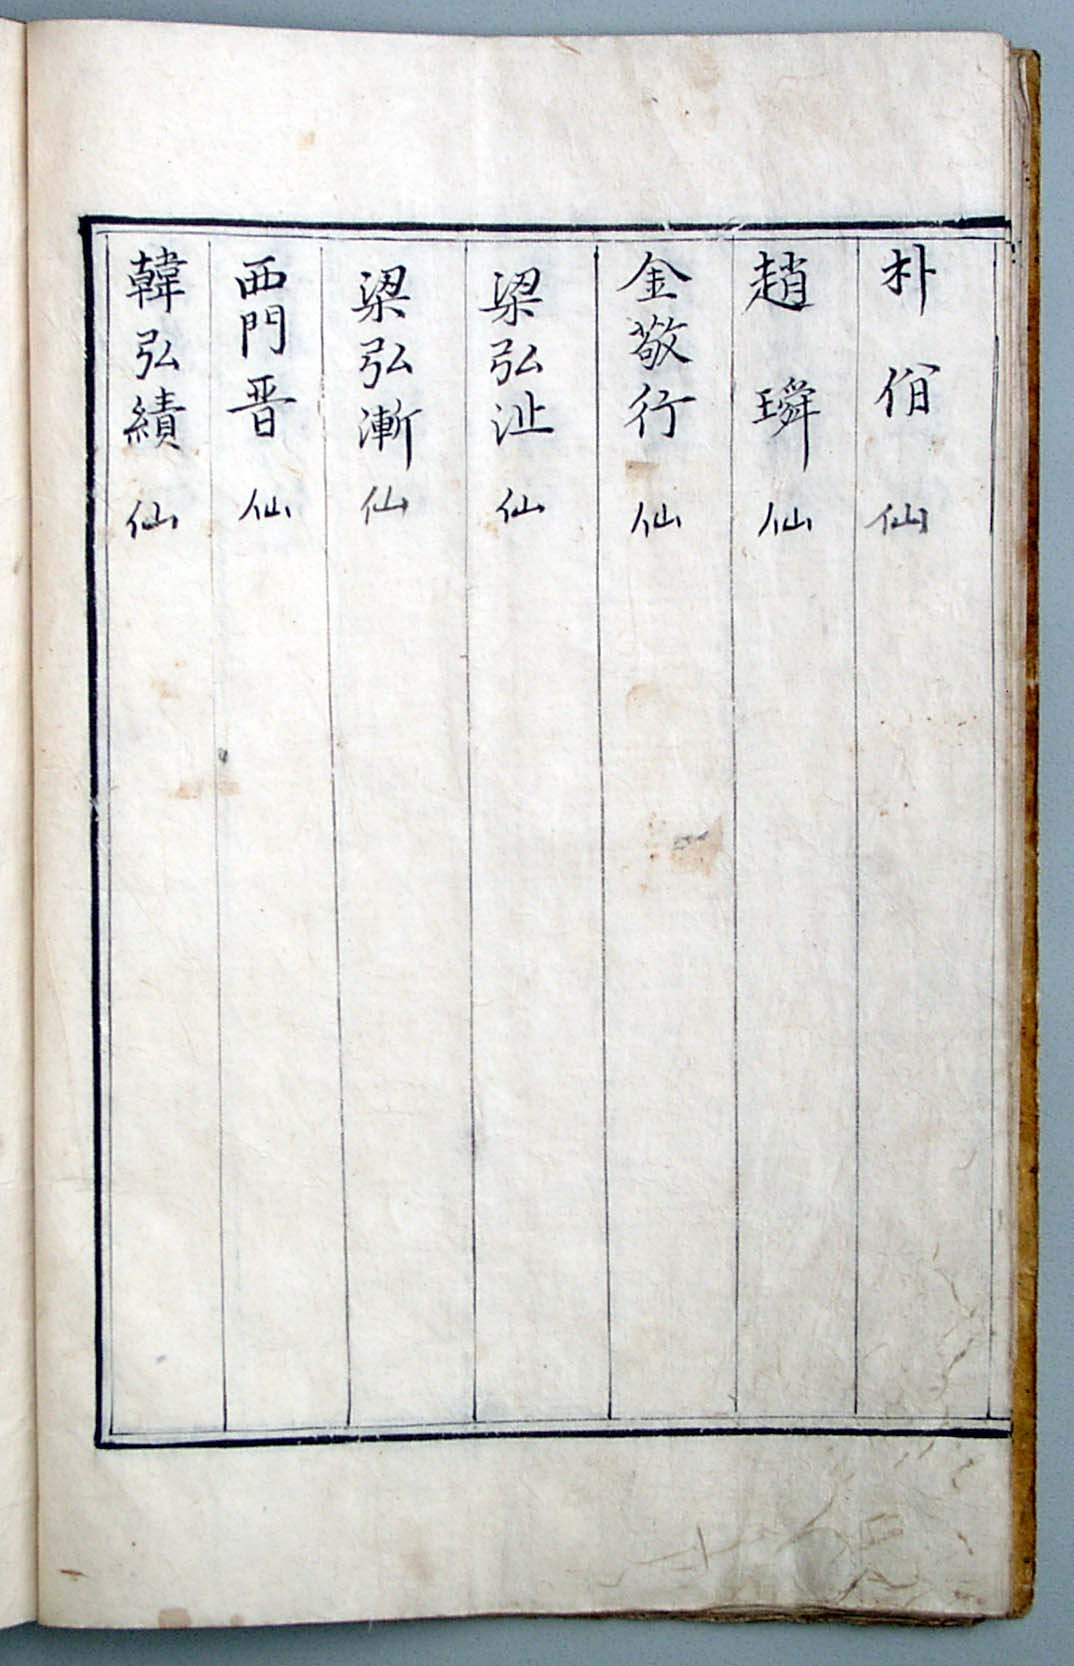 朴佾仙
趙璘仙
金敬行仙
梁弘沚仙
梁弘漸仙
西門晋仙
韓弘績仙